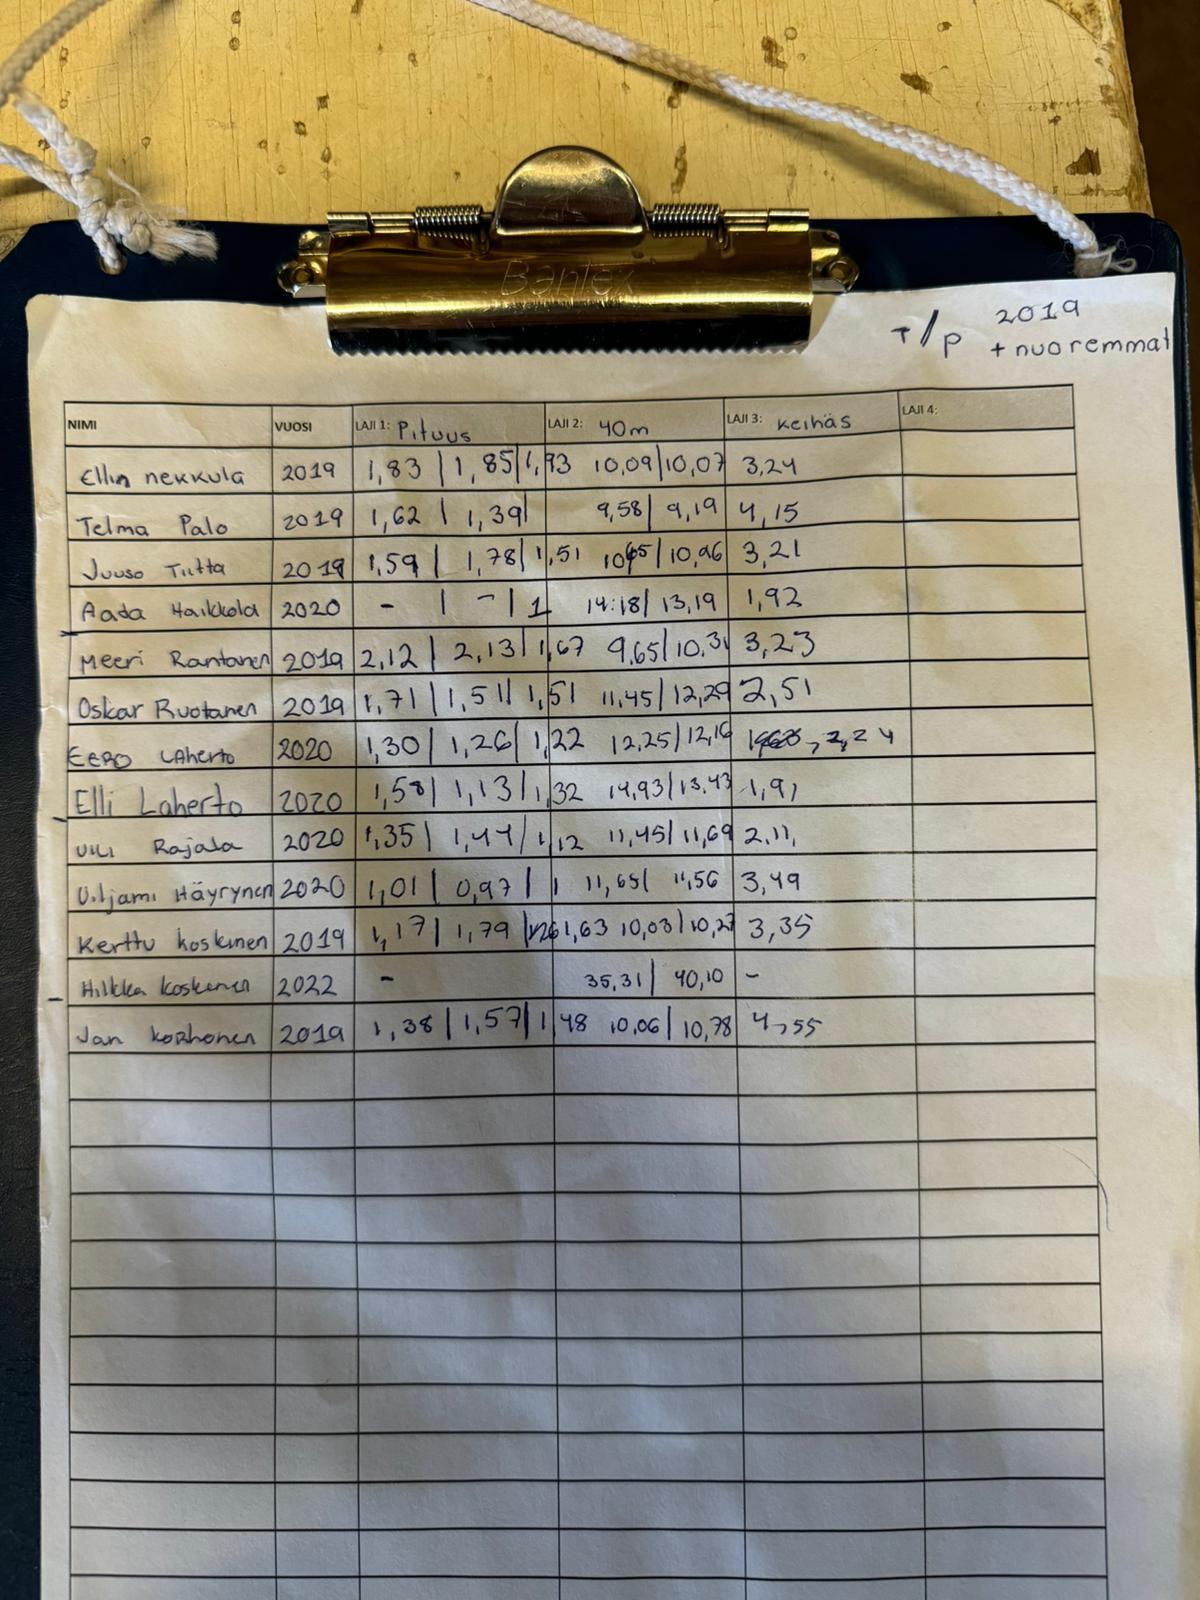 Bantex
T/P 2019
+ nuoremmat
NIMI VUOSI LAJI 1: Pituus LAJI 2: 40m LAJI 3: Keihäs LAJI 4:
Ellin nekkula 2019 1,83 | 1,85 | 1,93 10,09 | 10,07 3,24
Telma Palo 2019 1,62 | 1,39 | 9,58 | 9,19 4,15
Juuso Tiitta 2019 1,59 | 1,78 | 1,51 10,96 3,21
Aada Haikkola 2020 - | - | 1 14:18 | 13,19 1,92
Meeri Rantanen 2019 2,12 | 2,13 | 1,67 9,65 | 10,31 3,23
Oskar Ruotanen 2019 1,71 | 1,51 | 1,51 11,45 | 12,29 2,51
EERO LAherto 2020 1,30 | 1,26 | 1,22 12,25 | 12,16 2,24
Elli Laherto 2020 1,58 | 1,13 | 1,32 14,93 | 13,43 1,91
Vili Rajala 2020 1,35 | 1,44 | 1,12 11,45 | 11,69 2,11
Viljami Häyrynen 2020 1,01 | 0,97 | 1 11,65 | 11,56 3,49
Kerttu Koskinen 2019 1,17 | 1,79 | 1,63 10,03 | 10,27 3,35
Hilkka Koskenen 2022 - 35,31 | 40,10 -
Jan Korhonen 2019 1,38 | 1,57 | 1,48 10,06 | 10,78 4,55